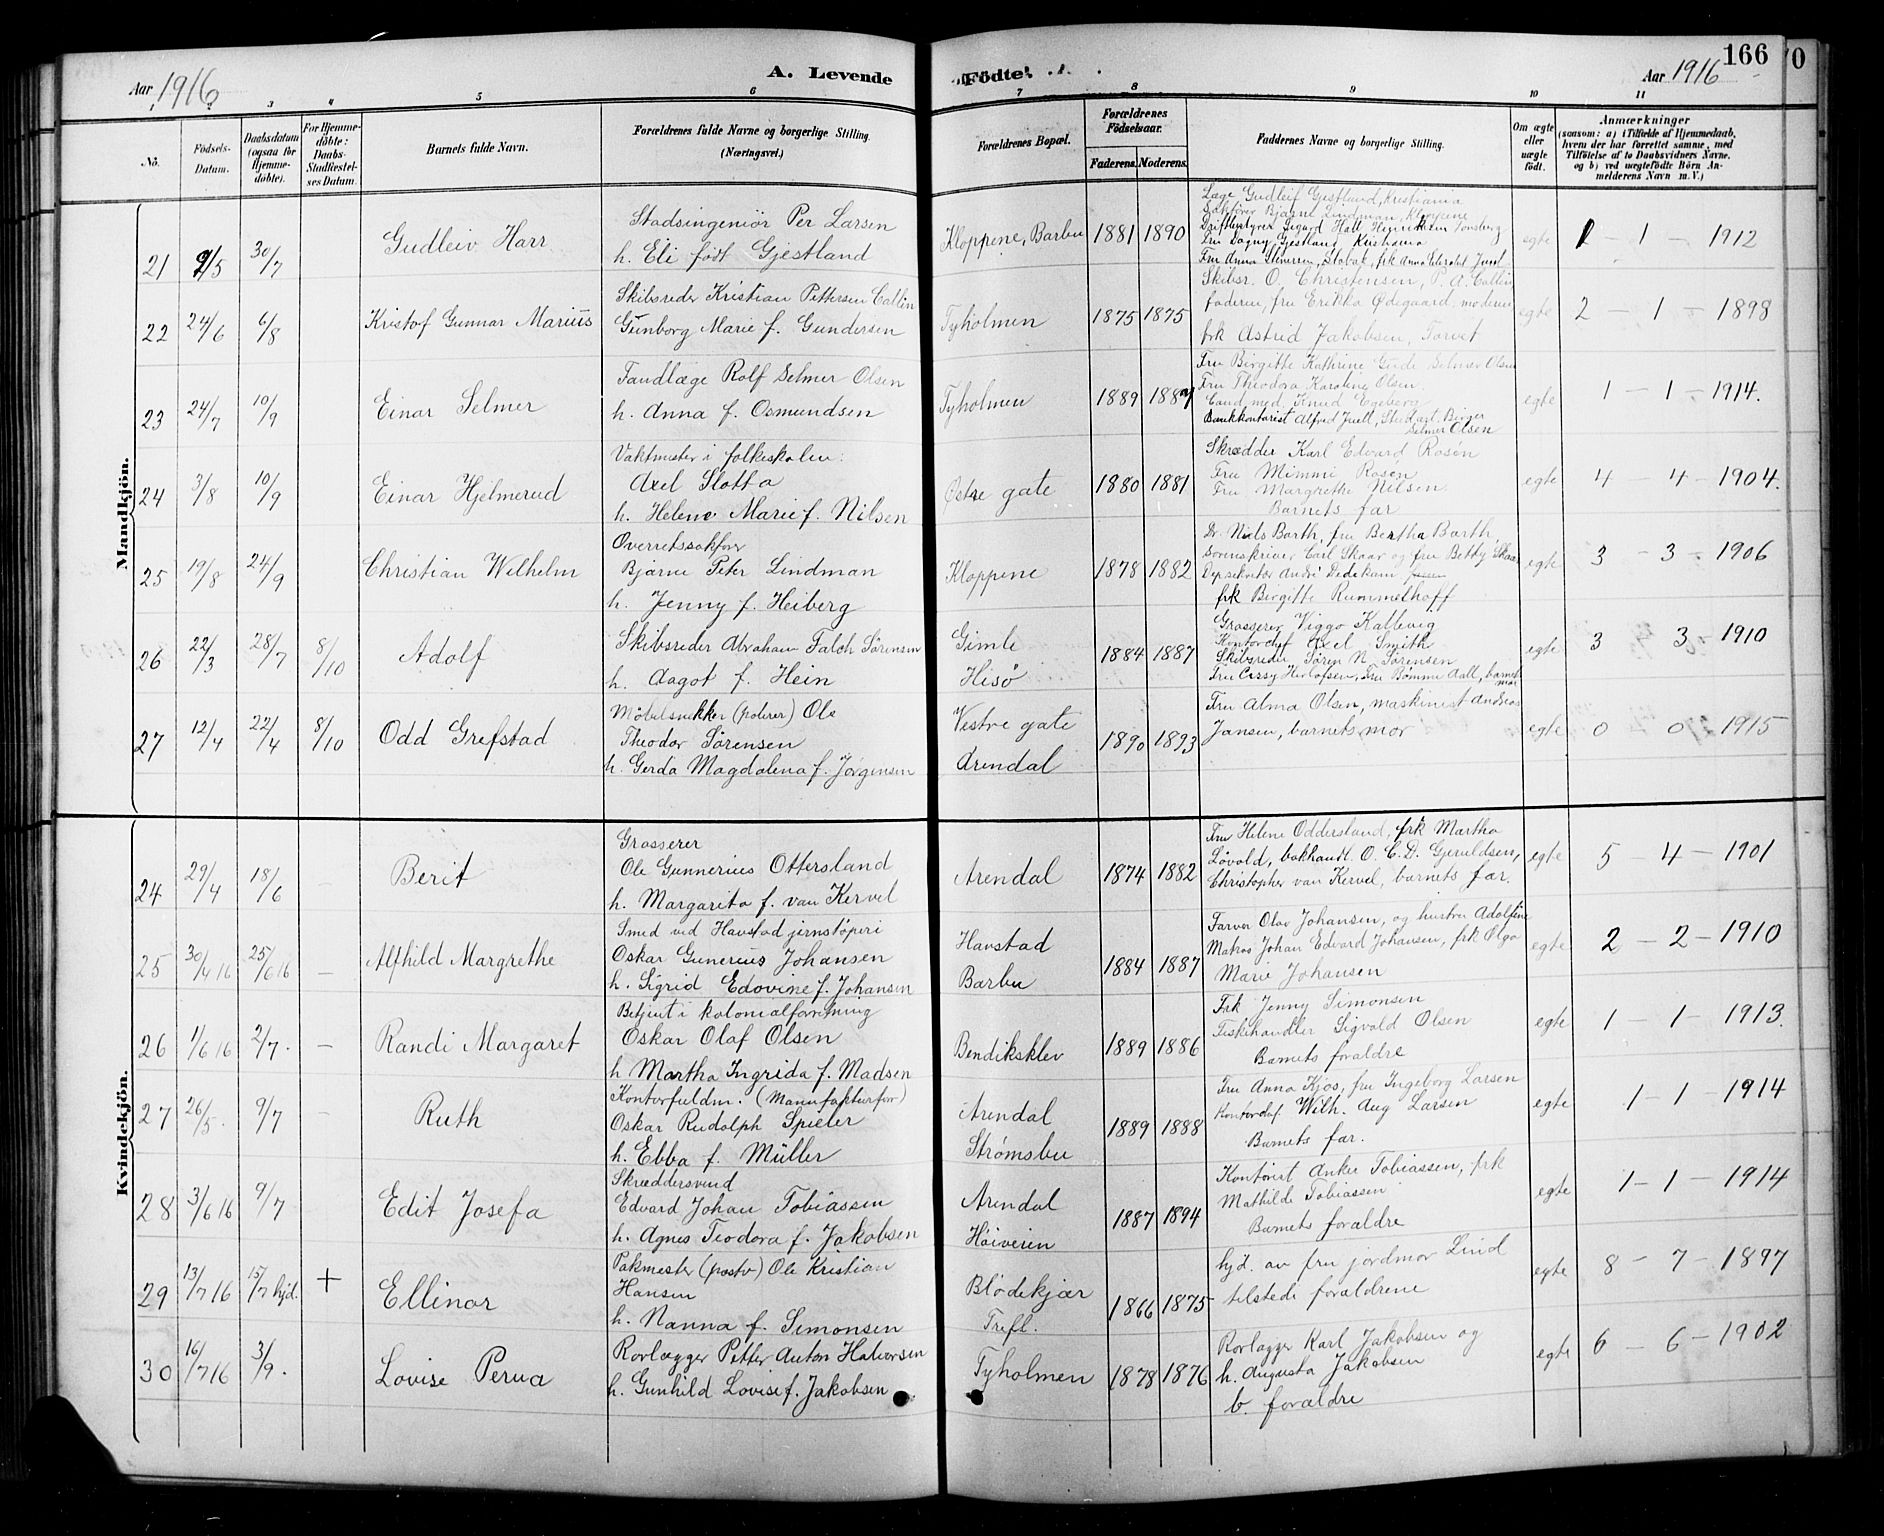 166
70
Aar 1916
A. Levende
Fødte.
Aar 1916
3 4 5 6 7 8 9 10 11
No.
Fødsels-Datum.
Daabsdatum (ogsaa for Hjemmedøbte).
For Hjemmedøbte: Daabs-Stadfæstelses Datum.
Barnets fulde Navn.
Forældrenes fulde Navne og borgerlige Stilling. (Næringsvei.)
Forældrenes Bopæl.
Forældrenes Fødselsaar.
Faderens. Moderens.
Faddernes Navne og borgerlige Stilling.
Om ægte eller uægte født.
Anmærkninger
(saasom: a) i Tilfælde af Hjemmedaab, hvem der har forrettet samme, med Tilføielse af to Daabsvidners Navne. og b) ved uægtefødte Børn Anmelderens Navn m. V.)
Mandkjøn.
21 9/5 30/7 Gudleiv Harr
Stadsingeniør Per Larsen
h. Eli født Gjestland
Kloppene, Barbu 1881 1890
Læge Gudleif Gjestland, Kristiania
Sakfører Bjarne Lindman, Kloppene
Driftbestyrer Sigard Hall Henriksen Tønsberg
Fru Dagny Gjestland Kristiania
egte 1 - 1 - 1912
22 24/6 6/8 Kristof Gunnar Marius
Skibsreder Kristian Pettersen Callin
Gunborg Marie f. Gundersen
Tyholmen 1875 1875
Skibsr. O. Christensen, P. A. Callin
faderen, fru Erikka Ødegaard, moderen
frk Astrid Jakobsen, Torvet
egte 2 - 1 - 1898
23 24/7 10/9 Einar Selmer
Tandlæge Rolf Selmer Olsen
h. Anna f. Osmundsen
Tyholmen 1889
Fru Birgitte Kathrine Gude Selmer Olsen
Fru Theodora Karoline Olsen.
Cand. med. Knud Egeberg
Bankkontorist Alfred Juell, Stud. art. Birger
Selmer Olsen
egte 1 - 1 - 1914.
24 3/8 10/9 Einar Hjelmerud
Vaktmester i folkeskolen:
Axel Slotta
h. Helene Marie f. Nilsen
Østre gate 1880 1881
Skrædder Karl Edvard Rosen
Fru Mimmi Rosen
Fru Margrethe Nilsen
Barnets far
egte 4 - 4 - 1904.
25 19/8 24/9 Christian Wilhelm
Overretssakfører
Bjarne Peter Lindman
h. Jenny f. Heiberg
Kloppene 1878 1882
Dr. Niels Barth, fru Bertha Barth
Sorenskriver Carl Skaar og fru Betty Skaar
Depsekretær André Dedekam
frk Birgitte Rummelhoff
egte 3 - 3 - 1906
26 22/3 28/7 8/10 Adolf
Skibsreder Abraham Falch Sørensen
h. Aagot f. Hein
Gimle
Hisø 1884 1887
Grosserer Viggo Kallevig
Kontorchef Axel Smith
Skibsreder Søren N. Sørensen
Fru Cissy Herlofsen, Fru Bømme Aall, barnets mor
egte 3 3 - 1910
27 12/4 22/4 8/10 Odd Grefstad
Møbelsnekker (polerer) Ole
Theodor Sørensen
h. Gerda Magdalena f. Jørgensen
Vestre gate
Arendal 1890 1893
Fru Alma Olsen, maskinist Andreas
Jansen, barnets mor
egte 0 0 - 1915
Kvindekjøn.
24 29/4 18/6 - Berit
Grosserer
Ole Gunnerius Ottersland
h. Margarita f. van Kervel
Arendal 1874 1882
Fru Helene Oddersland, frk Martha
Løvold, bokhandl. O. C. D. Gjeruldsen,
Christopher van Kervel, barnets far.
egte 5 - 4 - 1901
25 30/4 16 25/6 16 - Alfhild Margrethe
Smed ved Havstad jernstøperi
Oskar Gunerius Johansen
h. Sigrid Edovine f. Johansen
Havstad
Barbu 1884 1887
Farver Olav Johansen, og hustru Adolfine
Matros Johan Edvard Johansen, frk Olga
Marie Johansen
egte 2 - 2 - 1910
26 1/6 16 2/7. - Randi Margaret
Betjent i kolonialforretning
Oskar Olaf Olsen
h. Martha Ingrida f. Madsen
Bendiksklev 1889 1886
Frk Jenny Simonsen
Fiskehandler Sigvald Olsen
Barnets forældre
egte 1 - 1 - 1913.
27 26/5. 9/7 - Ruth
Kontorfuldm. (Manufakturforr)
Oskar Rudolph Spieler
h. Ebba f. Müller
Arendal
Strømsbu 1889 1888
Fru Anna Kjos, fru Ingeborg Larsen
Kontorchef Wilh. Aug Larsen
Barnets far.
egte 1 - 1 - 1914
28 3/6 16 9/7 Edit Josefa
Skræddersvend
Edvard Johan Tobiassen
h. Agnes Teodora f. Jakobsen
Arendal
Høiveien 1887 1894
Kontorist Anker Tobiassen, frk
Mathilde Tobiassen
Barnets forældre
egte 1 - 1 - 1914
29 13/7 16 15/7 hjd. + Ellinor
Pakmester (postv) Ole Kristian
Hansen
h. Nanna f. Simonsen
Blødekjær
Trefl. 1866 1875
hjd. av fru jordmor Lind
tilstede forældrene
egte 8 - 7 - 1897
30 16/7 16 3/9. Lovise Perna
Rørlægger Petter Anton Halvorsen
h. Gunhild Lovise f. Jakobsen
Tyholmen 1878 1876
Rørlægger Karl Jakobsen og
h. Augusta Jakobsen
b. forældre
egte 6 - 6 - 1902